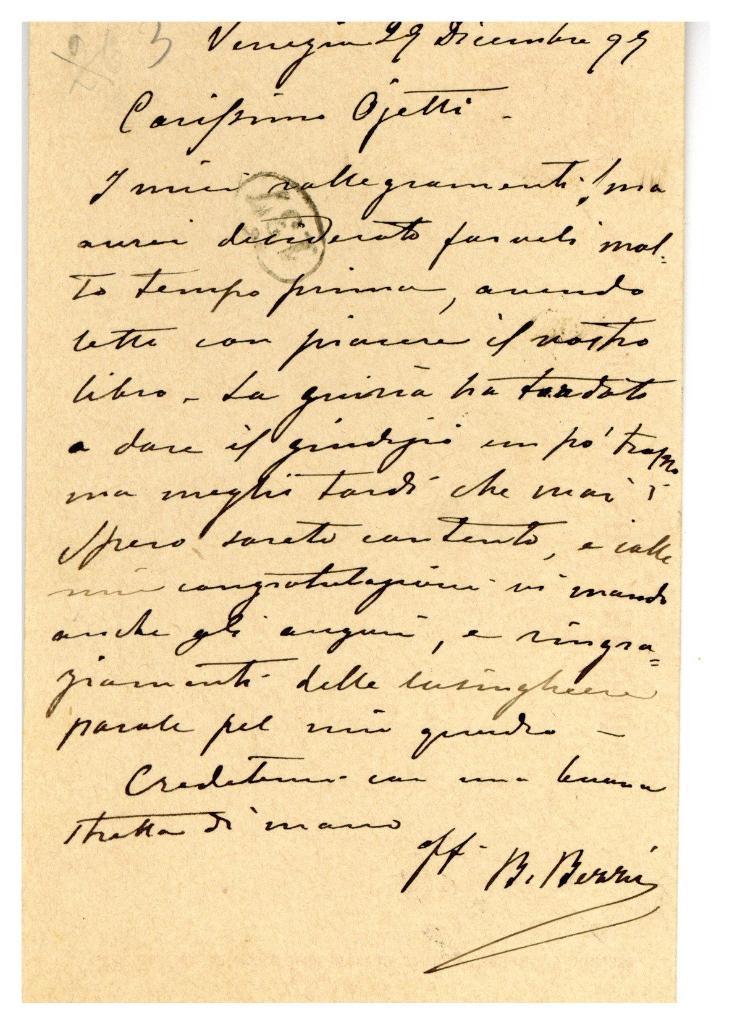 263
Venezia 29 Dicembre 99
Carissimo Ojetti -
I miei rallegramenti! ma
avrei desiderato farveli mol-
to tempo prima, avendo
letto con piacere il vostro
libro - La giuria ha tardato
a dare il giudizio un po' troppo
ma meglio tardi che mai!
Spero sarete contento, e colle
mie congratulazioni vi mando
anche gli auguri, e ringra=
ziamenti delle lusinghiere
parole pel mio quadro -
Credetemi con una buona
stretta di mano
aff. B. Bezzi